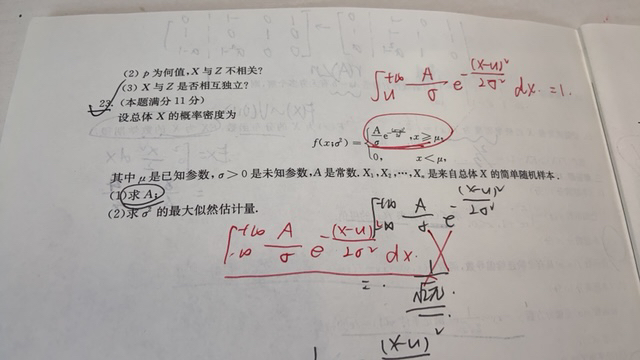 (2) p 为何值, X 与 Z 不相关?
(3) X 与 Z 是否相互独立?
23. (本题满分 11 分)
设总体 X 的概率密度为
f(x;σ²) = { A/σ e^{-(x-μ)²/2σ²}, x ≥ μ,
0, x < μ,
其中 μ 是已知参数, σ > 0 是未知参数, A 是常数. X₁, X₂, …, Xₙ 是来自总体 X 的简单随机样本.
(1) 求 A;
(2) 求 σ² 的最大似然估计量.
∫_u^{+∞} A/σ e^{-(x-u)²/2σ²} dx = 1.
∫_{-∞}^{+∞} A/σ e^{-(x-u)²/2σ²}
∫_{-∞}^{+∞} A/σ e^{-(x-u)²/2σ²} dx.
= .
1/√2π.
(x-u)²